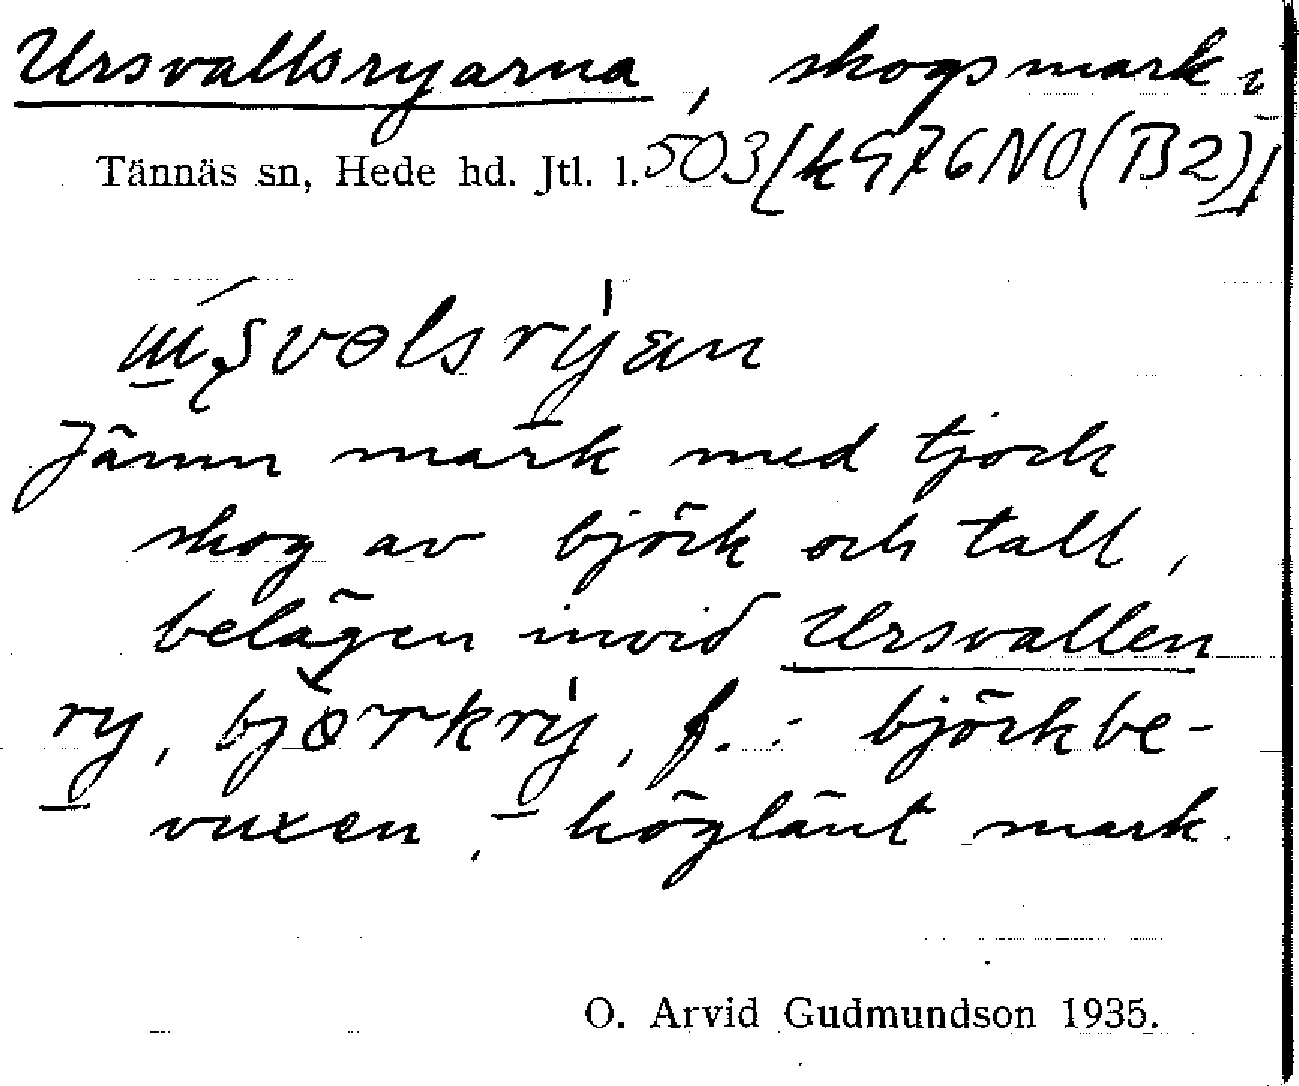 Ursvallsryarna, skogsmark i
Tännäs sn, Hede hd. Jtl. l. 503[k976NO(B2)]
Jämn mark med tjock
skog av björk och tall,
belägen invid Ursvallen
ry, bjørkry, f. : björkbe-
vuxen, höglänt mark.
O. Arvid Gudmundson 1935.